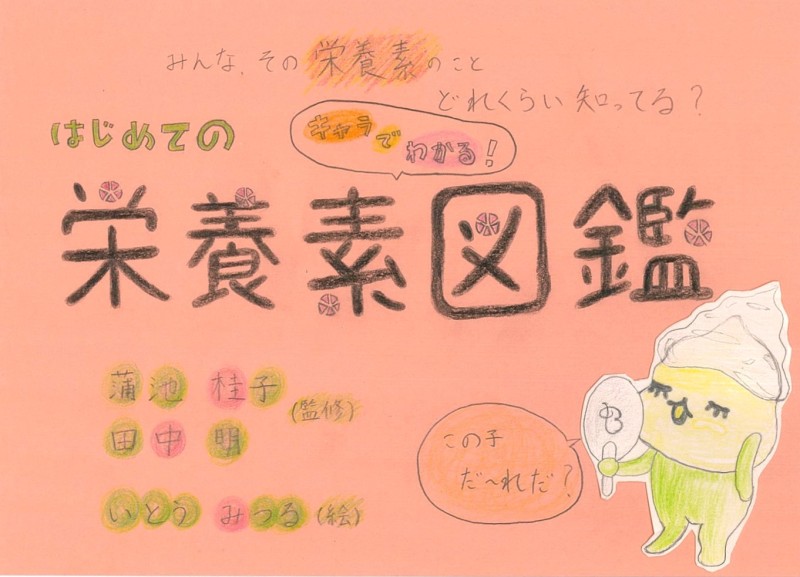 みんな、その栄養素のこと
どれくらい知ってる？
はじめての
キャラで
わかる！
栄養素図鑑
蒲池 桂子
田中 明
(監修)
いとう みつる (絵)
この子
だ〜れだ？